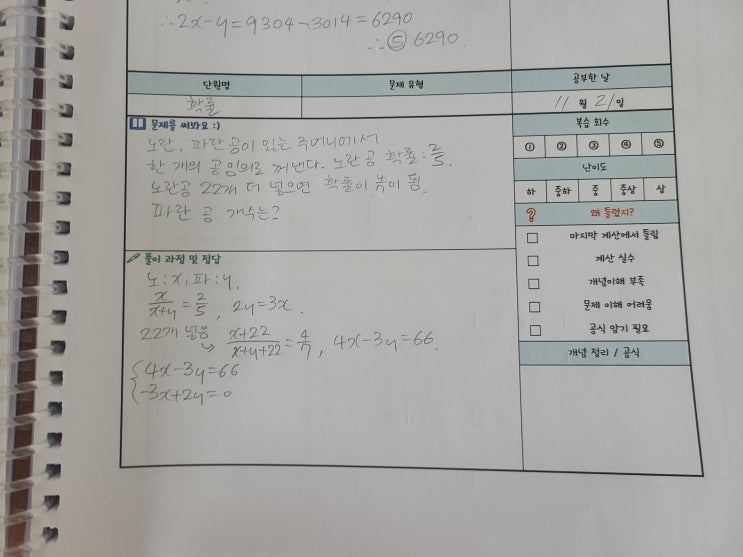 ∴2x-y=9304-3014=6290
∴⑤ 6290.
단원명 문제 유형 공부한 날
확률 11월 21일
문제를 써봐요 :)
노란, 파란 공이 있는 주머니에서
한 개의 공 임의로 꺼낸다. 노란공 확률: 2/5.
노란공 22개 더 넣으면 확률이 4/7이 됨.
파란 공 개수는?
복습 회수
① ② ③ ④ ⑤
난이도
하 중하 중 중상 상
왜 틀렸지?
마지막 계산에서 틀림
계산 실수
개념이해 부족
문제 이해 어려움
공식 암기 필요
개념 정리 / 공식
풀이 과정 및 정답
노:x, 파:y.
x/(x+y)=2/5, 2y=3x.
22개 넣음
↳ (x+22)/(x+y+22)=4/7, 4x-3y=66.
{4x-3y=66
-3x+2y=0